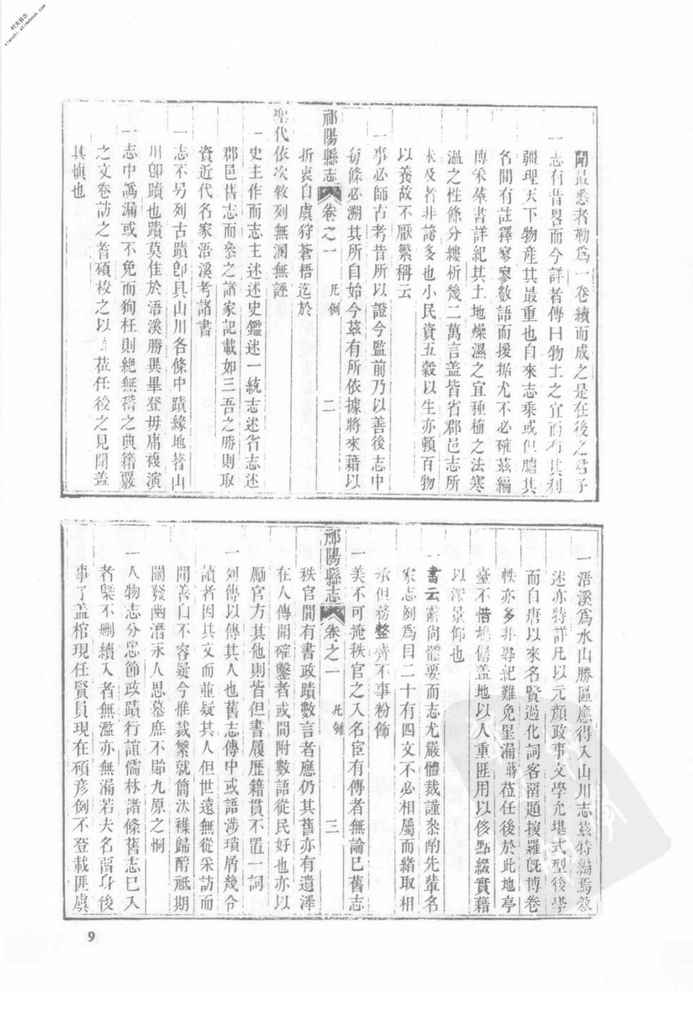 聞最悉者勒為一卷續而成之是在後之君子
一志有昔畧而今詳者傳曰物土之宜而布其利
疆理天下物產其最重也自來志乘或但臚其
名間有註釋寥寥數語而援據尤不必確茲編
博采羣書詳紀其土地燥濕之宜種植之法寒
溫之性條分縷析幾二萬言蓋皆省郡邑志所
未及者非誇多也小民資五穀以生亦賴百物
以養故不厭繁稱云
一事必師古考昔所以證今監前乃以善後志中
每條必溯其所自始今莘有所依據將來藉以
折衷自虞狩蒼梧迄於
聖代依次敘列無漏無誣
祁陽縣志 卷之一 凡例 二
一史主作而志主述述史鑑述一統志述省志述
郡邑舊志而參之諸家記載如三吾之勝則取
資近代名家浯溪考諸書
一志不另列古蹟卽具山川各條中蹟緣地著山
川卽蹟也蹟莫佳於浯溪勝異畢登毋庸複演
一志中譌漏或不免而狥枉則絕無稽之典籍覈
之文卷訪之耆碩校之以 蒞任後之見聞蓋
其愼也
一浯溪為水山勝區應得入山川志茲特編焉敘
述亦特詳凡以元顏政事文學允堪式型後學
而自唐以來名賢過化詞客留題搜羅旣博卷
帙亦多非專紀難免罣漏 蒞任後於此地亭
臺不惜增脩蓋地以人重匪用以侈點綴實藉
以深景仰也
一書云辭尚體要而志尤嚴體裁謹叅酌先輩名
家志例為目二十有四文不必相屬而緒取相
承但務整齊不事粉飾
一美不可掩秩官之入名宦有傳者無論已舊志
祁陽縣志 卷之一 凡例 三
秩官間有書政蹟數言者應仍其舊亦有遺澤
在人傳聞確鑿者或間附數語從民好也亦以
勵官方其他則皆但書履歷籍貫不置一詞
一列傳以傳其人也舊志傳中或語涉瑣屑幾令
讀者因其文而並疑其人但世遠無從采訪而
聞善口不容疑今惟裁繁就簡汰襍歸醇祇期
闡發幽潛永人思慕庶不貽九原之恫
一人物志分忠節政蹟行誼儒林諸條舊志已入
者槩不刪續入者無濫亦無漏若夫名留身後
事了蓋棺現任賢員現在碩彦例不登載匪虞
9